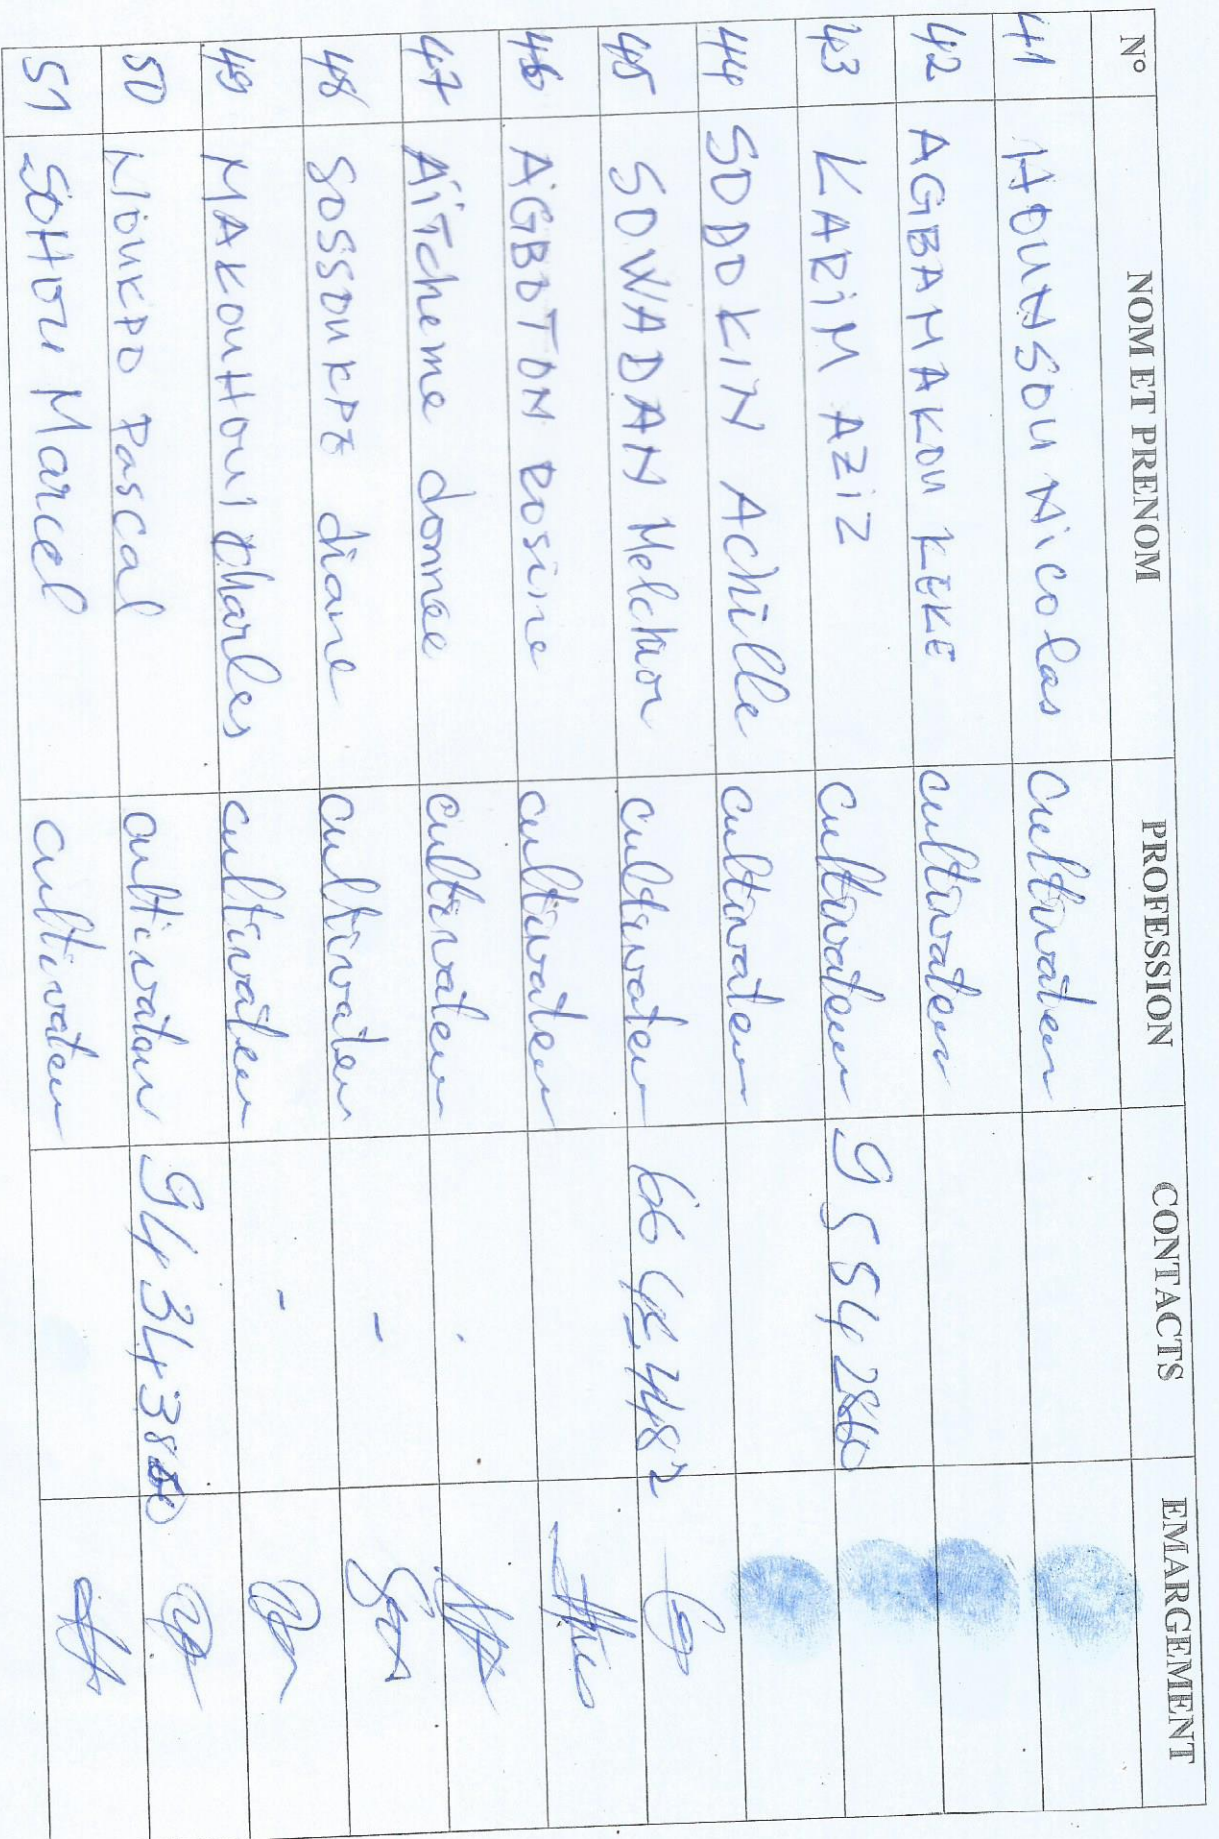 N° NOM ET PRENOM PROFESSION CONTACTS EMARGEMENT
41 HOUNSOU Nicolas cultivateur
42 AGBAMAKOU KEKE cultivateur
43 KARIM AZIZ cultivateur 95542860
44 SODOKIN Achille cultivateur
45 SOWADAN Melchior cultivateur 66484482
46 AGBOTON Rosine cultivateur
47 AÏTcheme donnée cultivateur
48 SOSSOUKPO diane cultivateur -
49 MAKOUHOUI Charles cultivateur -
50 NOUKPO Pascal cultivateur 943438
51 SOHOU Marcel cultivateur